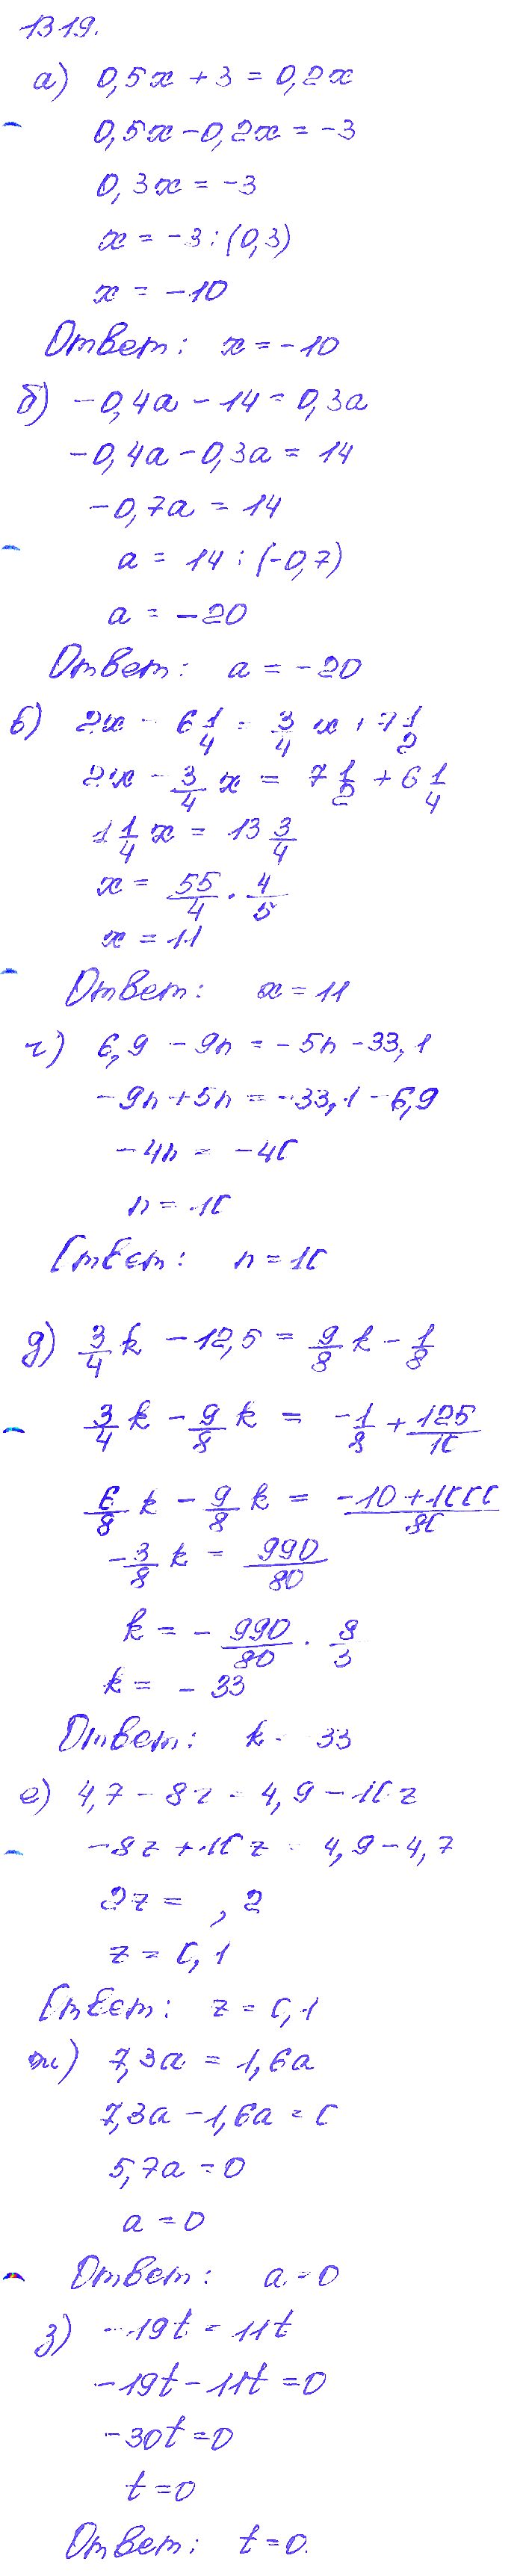 1319.
а) 0,5x + 3 = 0,2x
0,5x - 0,2x = -3
0,3x = -3
x = -3 : (0,3)
x = -10
Ответ: x = -10
б) -0,4a - 14 = 0,3a
-0,4a - 0,3a = 14
-0,7a = 14
a = 14 : (-0,7)
a = -20
Ответ: a = -20
в) 2x - 6 1/4 = 3/4 x + 7 1/2
2x - 3/4 x = 7 1/2 + 6 1/4
1 1/4 x = 13 3/4
x = 55/4 · 4/5
x = 11
Ответ: x = 11
г) 6,9 - 9n = -5n - 33,1
-9n + 5n = -33,1 - 6,9
-4n = -40
n = 10
Ответ: n = 10
д) 3/4 k - 12,5 = 9/8 k - 1/8
3/4 k - 9/8 k = -1/8 + 125/10
6/8 k - 9/8 k = -10 + 1000/80
-3/8 k = 990/80
k = - 990/80 · 8/3
k = - 33
Ответ: k - 33
е) 4,7 - 8z = 4,9 - 10z
-8z + 10z = 4,9 - 4,7
2z = ,2
z = 0,1
Ответ: z = 0,1
ж) 7,3a = 1,6a
7,3a - 1,6a = 0
5,7a = 0
a = 0
Ответ: a = 0
з) -19t = 11t
-19t - 11t = 0
-30t = 0
t = 0
Ответ: t = 0.